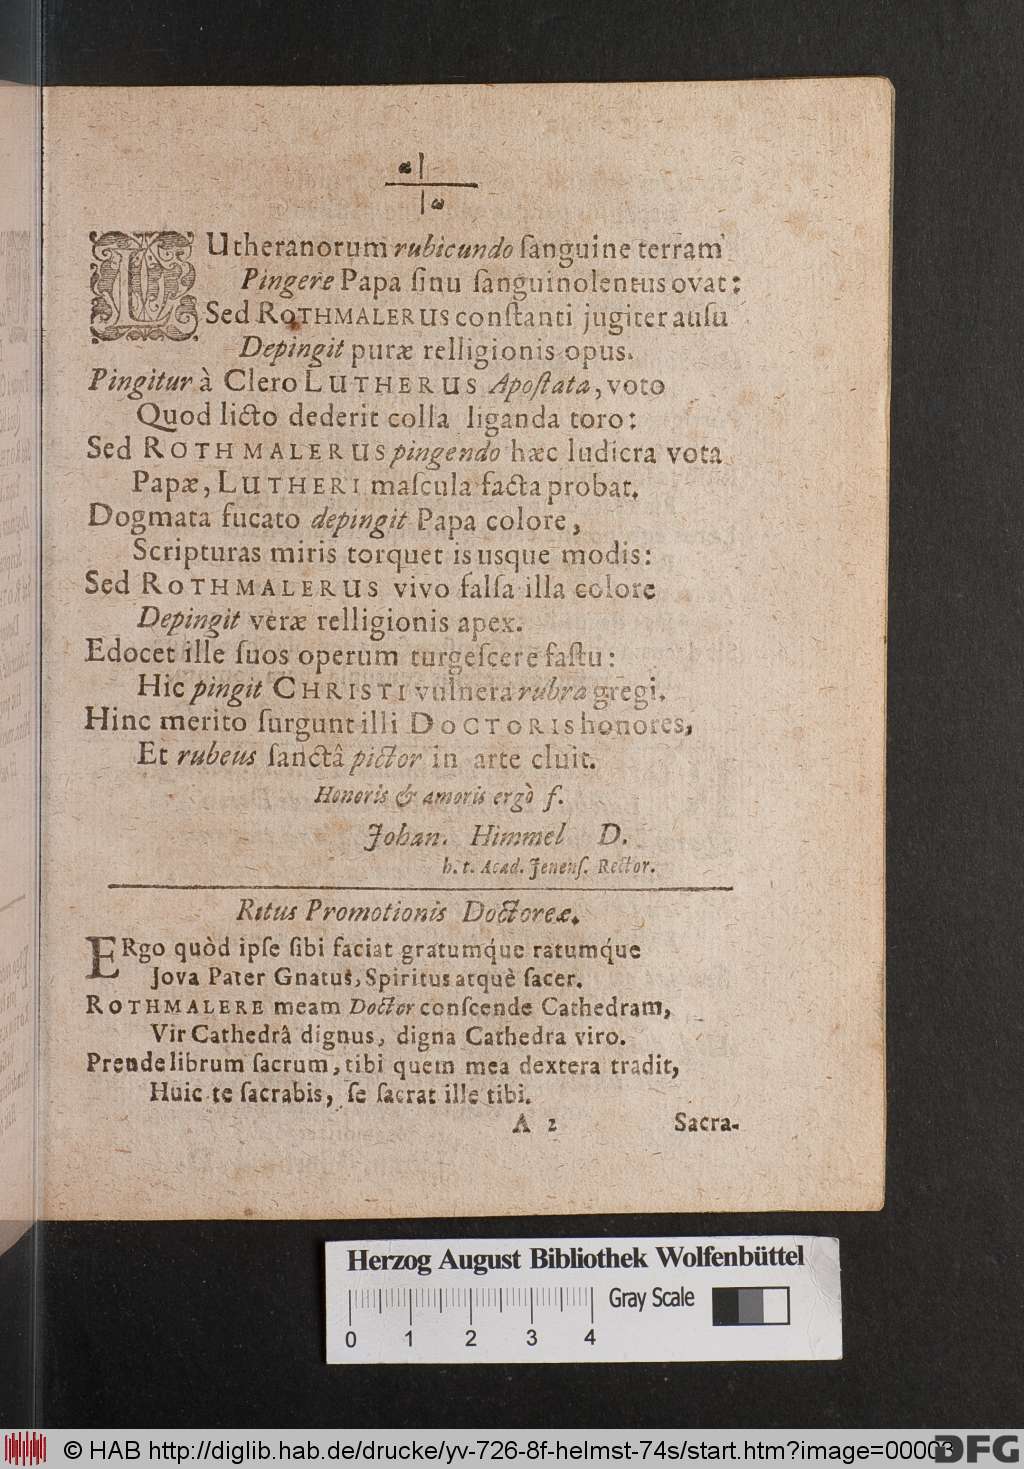 α|
|ω
LUtheranorum rubicundo ſanguine terram
Pingere Papa ſinu ſanguinolentus ovat:
Sed ROTHMALERUS conſtanti jugiter auſu
Depingit puræ relligionis opus.
Pingitur à Clero LUTHERUS Apoſtata, voto
Quod licto dederit colla liganda toro:
Sed ROTHMALERUS pingendo hæc ludicra vota
Papæ, LUTHERI maſcula facta probat.
Dogmata fucato depingit Papa colore,
Scripturas miris torquet is usque modis:
Sed ROTHMALERUS vivo falſa illa colore
Depingit veræ relligionis apex.
Edocet ille ſuos operum turgeſcere faſtu:
Hic pingit CHRISTI vulnera rubra gregi.
Hinc merito ſurgunt illi DOCTORIS honores,
Et rubeus ſanctâ pictor in arte cluit.
Honoris & amoris ergò f.
Johan. Himmel D.
h. t. Acad. Jenenſ. Rector.
Ritus Promotionis Doctoreæ.
ERgo quòd ipſe ſibi faciat gratumq́ue ratumq́ue
Jova Pater Gnatus, Spiritus atquè ſacer.
ROTHMALERE meam Doctor conſcende Cathedram,
Vir Cathedrâ dignus, digna Cathedra viro.
Prende librum ſacrum, tibi quem mea dextera tradit,
Huic te ſacrabis, ſe ſacrat ille tibi.
A 2 Sacra-
Herzog August Bibliothek Wolfenbüttel
Gray Scale
0 1 2 3 4
© HAB http://diglib.hab.de/drucke/yv-726-8f-helmst-74s/start.htm?image=00003
DFG